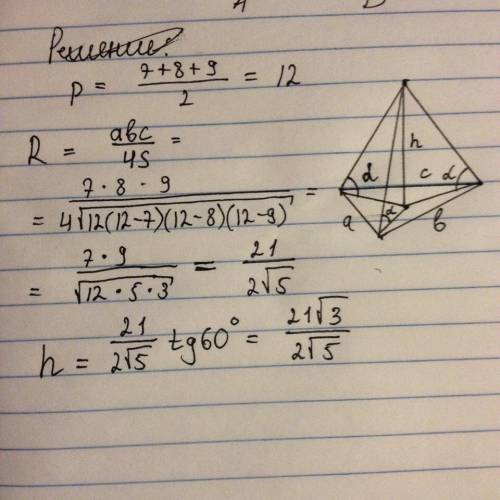 Решение:
p = \frac{7+8+9}{2} = 12
R = \frac{abc}{4S} =
= \frac{7 · 8 · 9}{4\sqrt{12(12-7)(12-8)(12-9)}} =
= \frac{7 · 9}{\sqrt{12 · 5 · 3}} = \frac{21}{2\sqrt{5}}
h = \frac{21}{2\sqrt{5}} tg60° = \frac{21\sqrt{3}}{2\sqrt{5}}
h
α c α
a α b